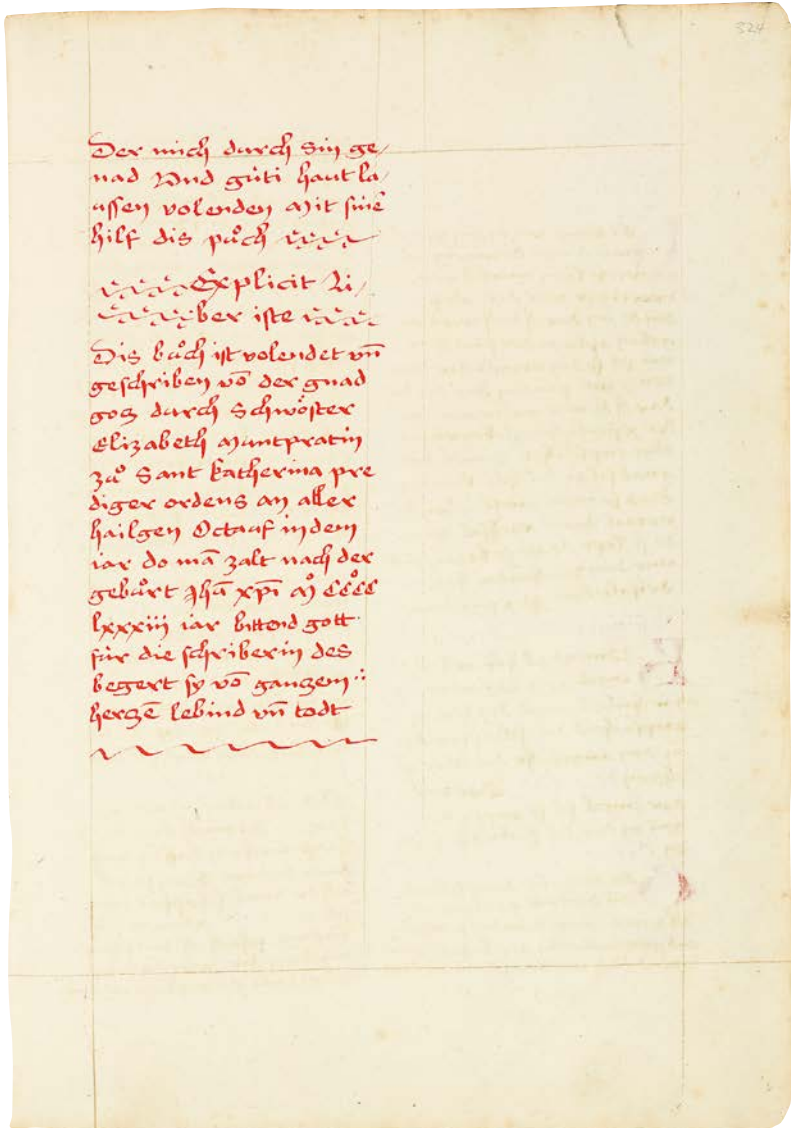 324
Der mich durch Sin ge/
nad Vnd gůti haut la/
ussen volenden Mit sinē
hilf dis půch
Explicit Li/
ber iste
Dis bůch ist volendet vn̄
geschriben vō der gnad
gocz durch Schwöster
Elizabeth Muntpratin
zů Sant katherina pre
diger ordens an aller
hailgen Octauf in dem
iar do mā zalt nach der
gebůrt Jhū xp̄i Mº CCCCº
lxxxiii iar bittend gott
für die schriberin des
begert sy vō ganczem
herczē lebind vn̄ todt